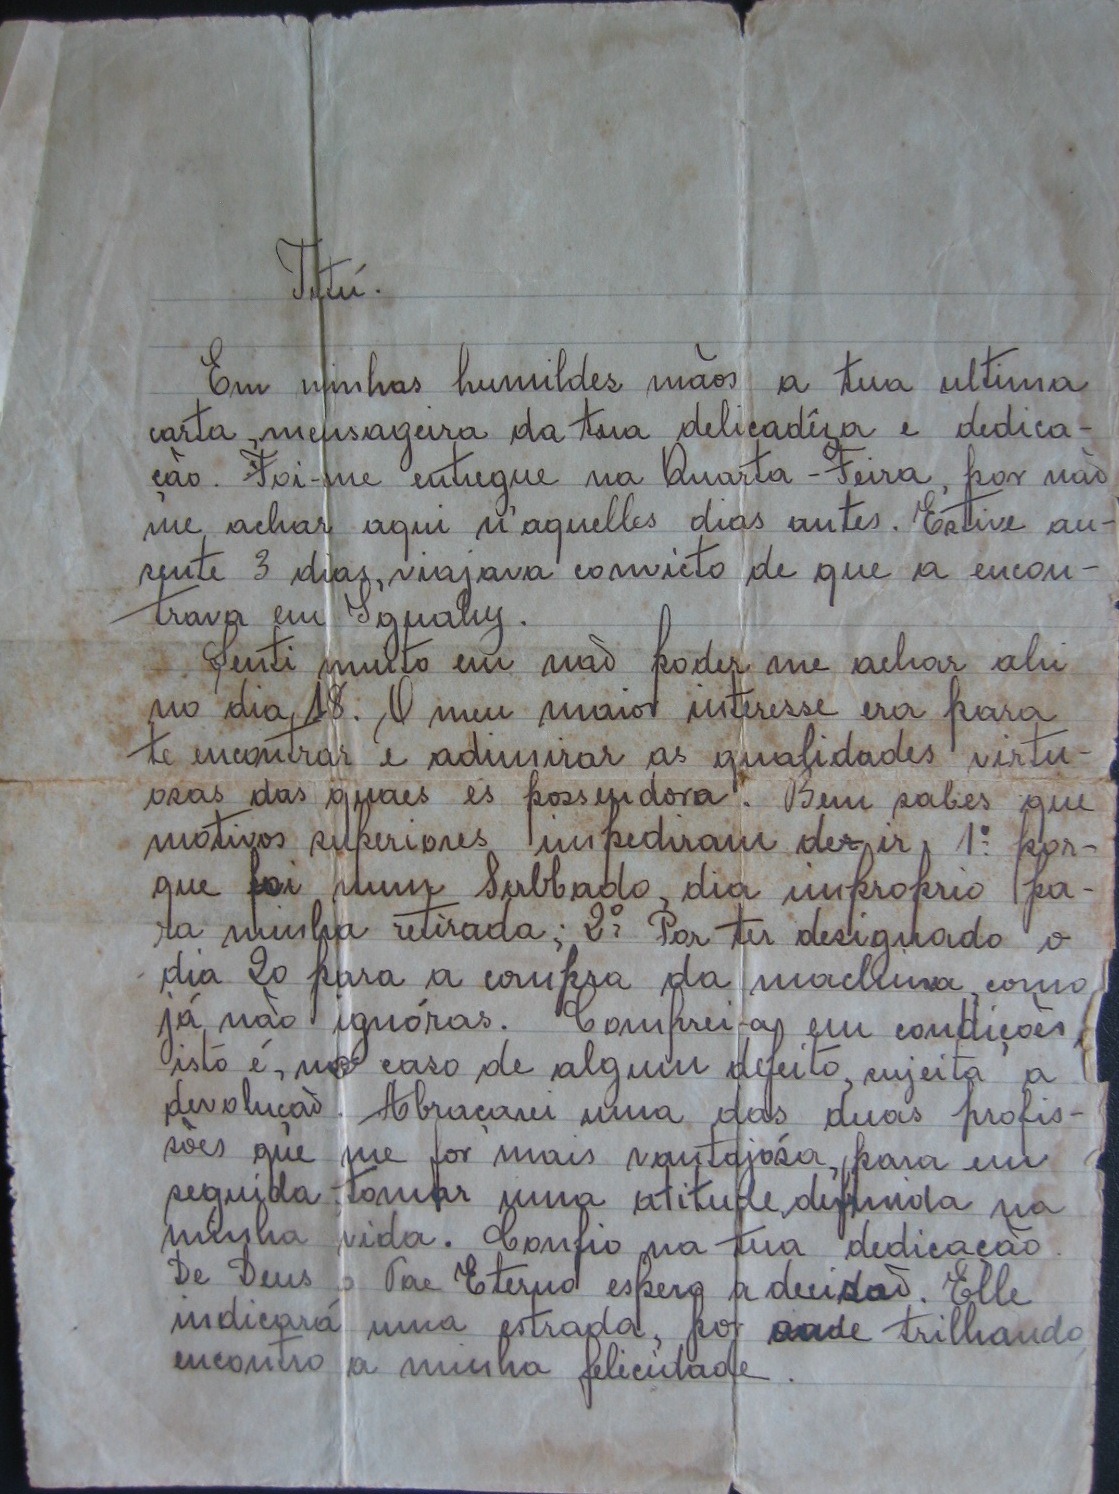 Titú.
Em minhas humildes mãos a tua ultima
carta, mensageira da tua delicadêza e dedica-
ção. Foi-me entregue na Quarta-Feira, por não
me achar aqui n'aquelles dias antes. Estive au-
sente 3 dias, viajava convicto de que a encon-
trava em Iguahy.
Senti muito em não poder me achar ahi
no dia 18. O meu maior interesse era para
te encontrar e adimirar as qualidades virtu-
osas das quaes és possuidora. Bem sabes que
motivos superiores impediram de ir, 1º por-
que foi num Sabbado, dia improprio pa-
ra minha retirada; 2º Por ter designado o
dia 20 para a compra da machina, como
já não ignóras. Comprei-a, em condições,
isto é, no caso de algum defeito, sujeita a
devolução. Abraçarei uma das duas profis-
sões que me for mais vantajósa, para em
seguida tomar uma atitude definida na
minha vida. Confio na tua dedicação.
De Deus o Pae Eterno espero a decisão. Elle
indicará uma estrada, por onde trilhando
encontro a minha felicidade.